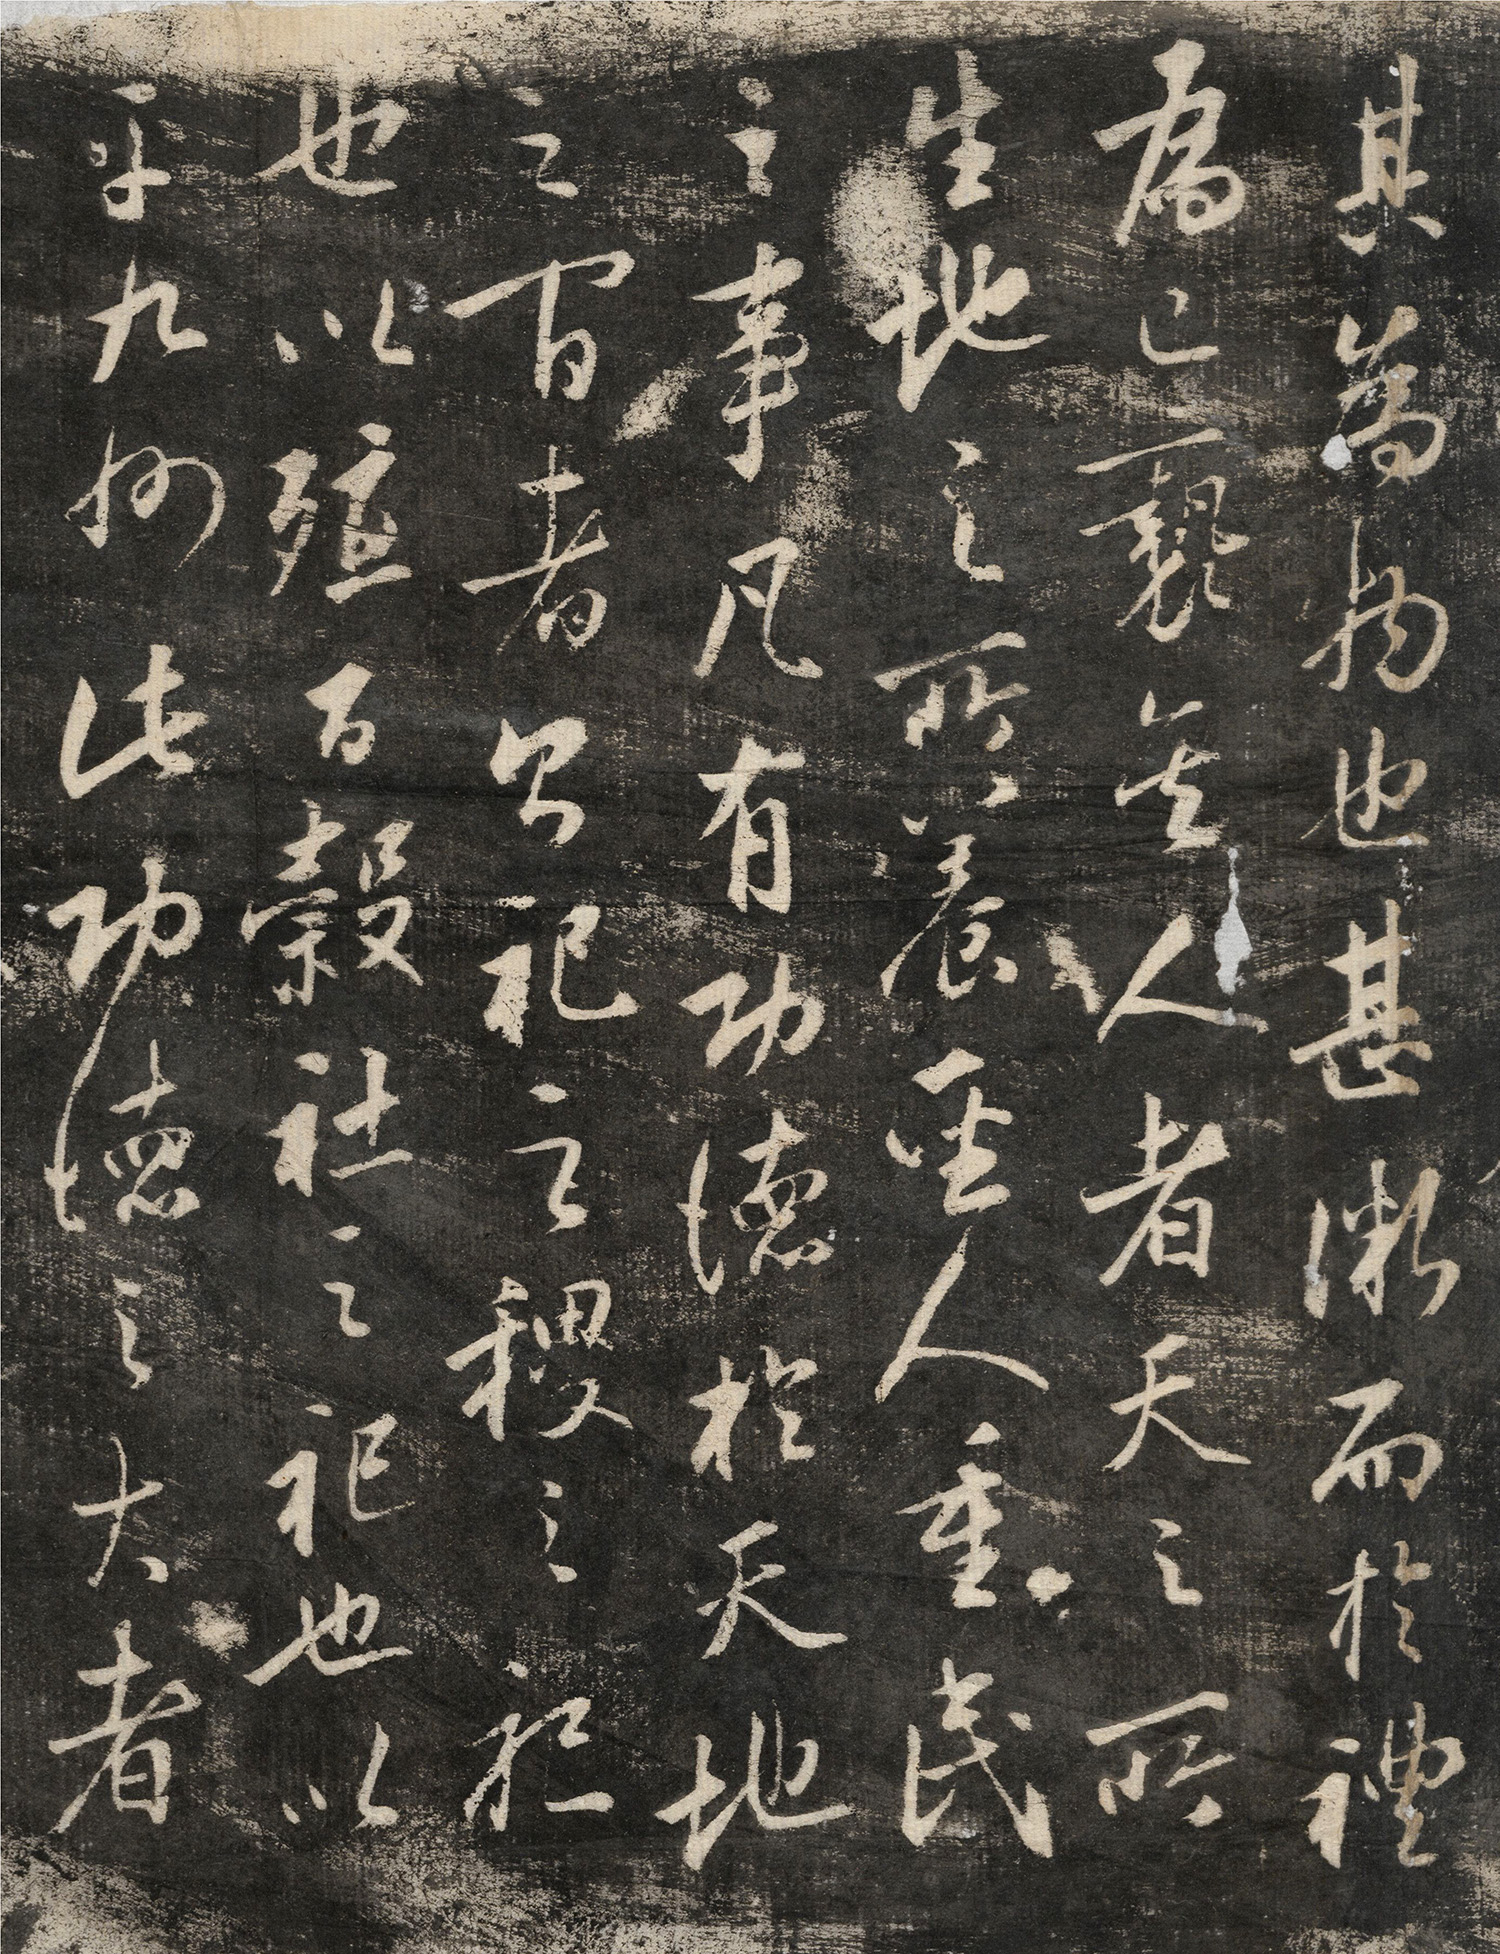 其為物也甚微而於禮
為已褻矣人者天之所
生地之所養聖人重民
之事凡有功德於天地
之間者皆祀之稷之祀
也以殖百穀社之祀也以
平九州此功德之大者